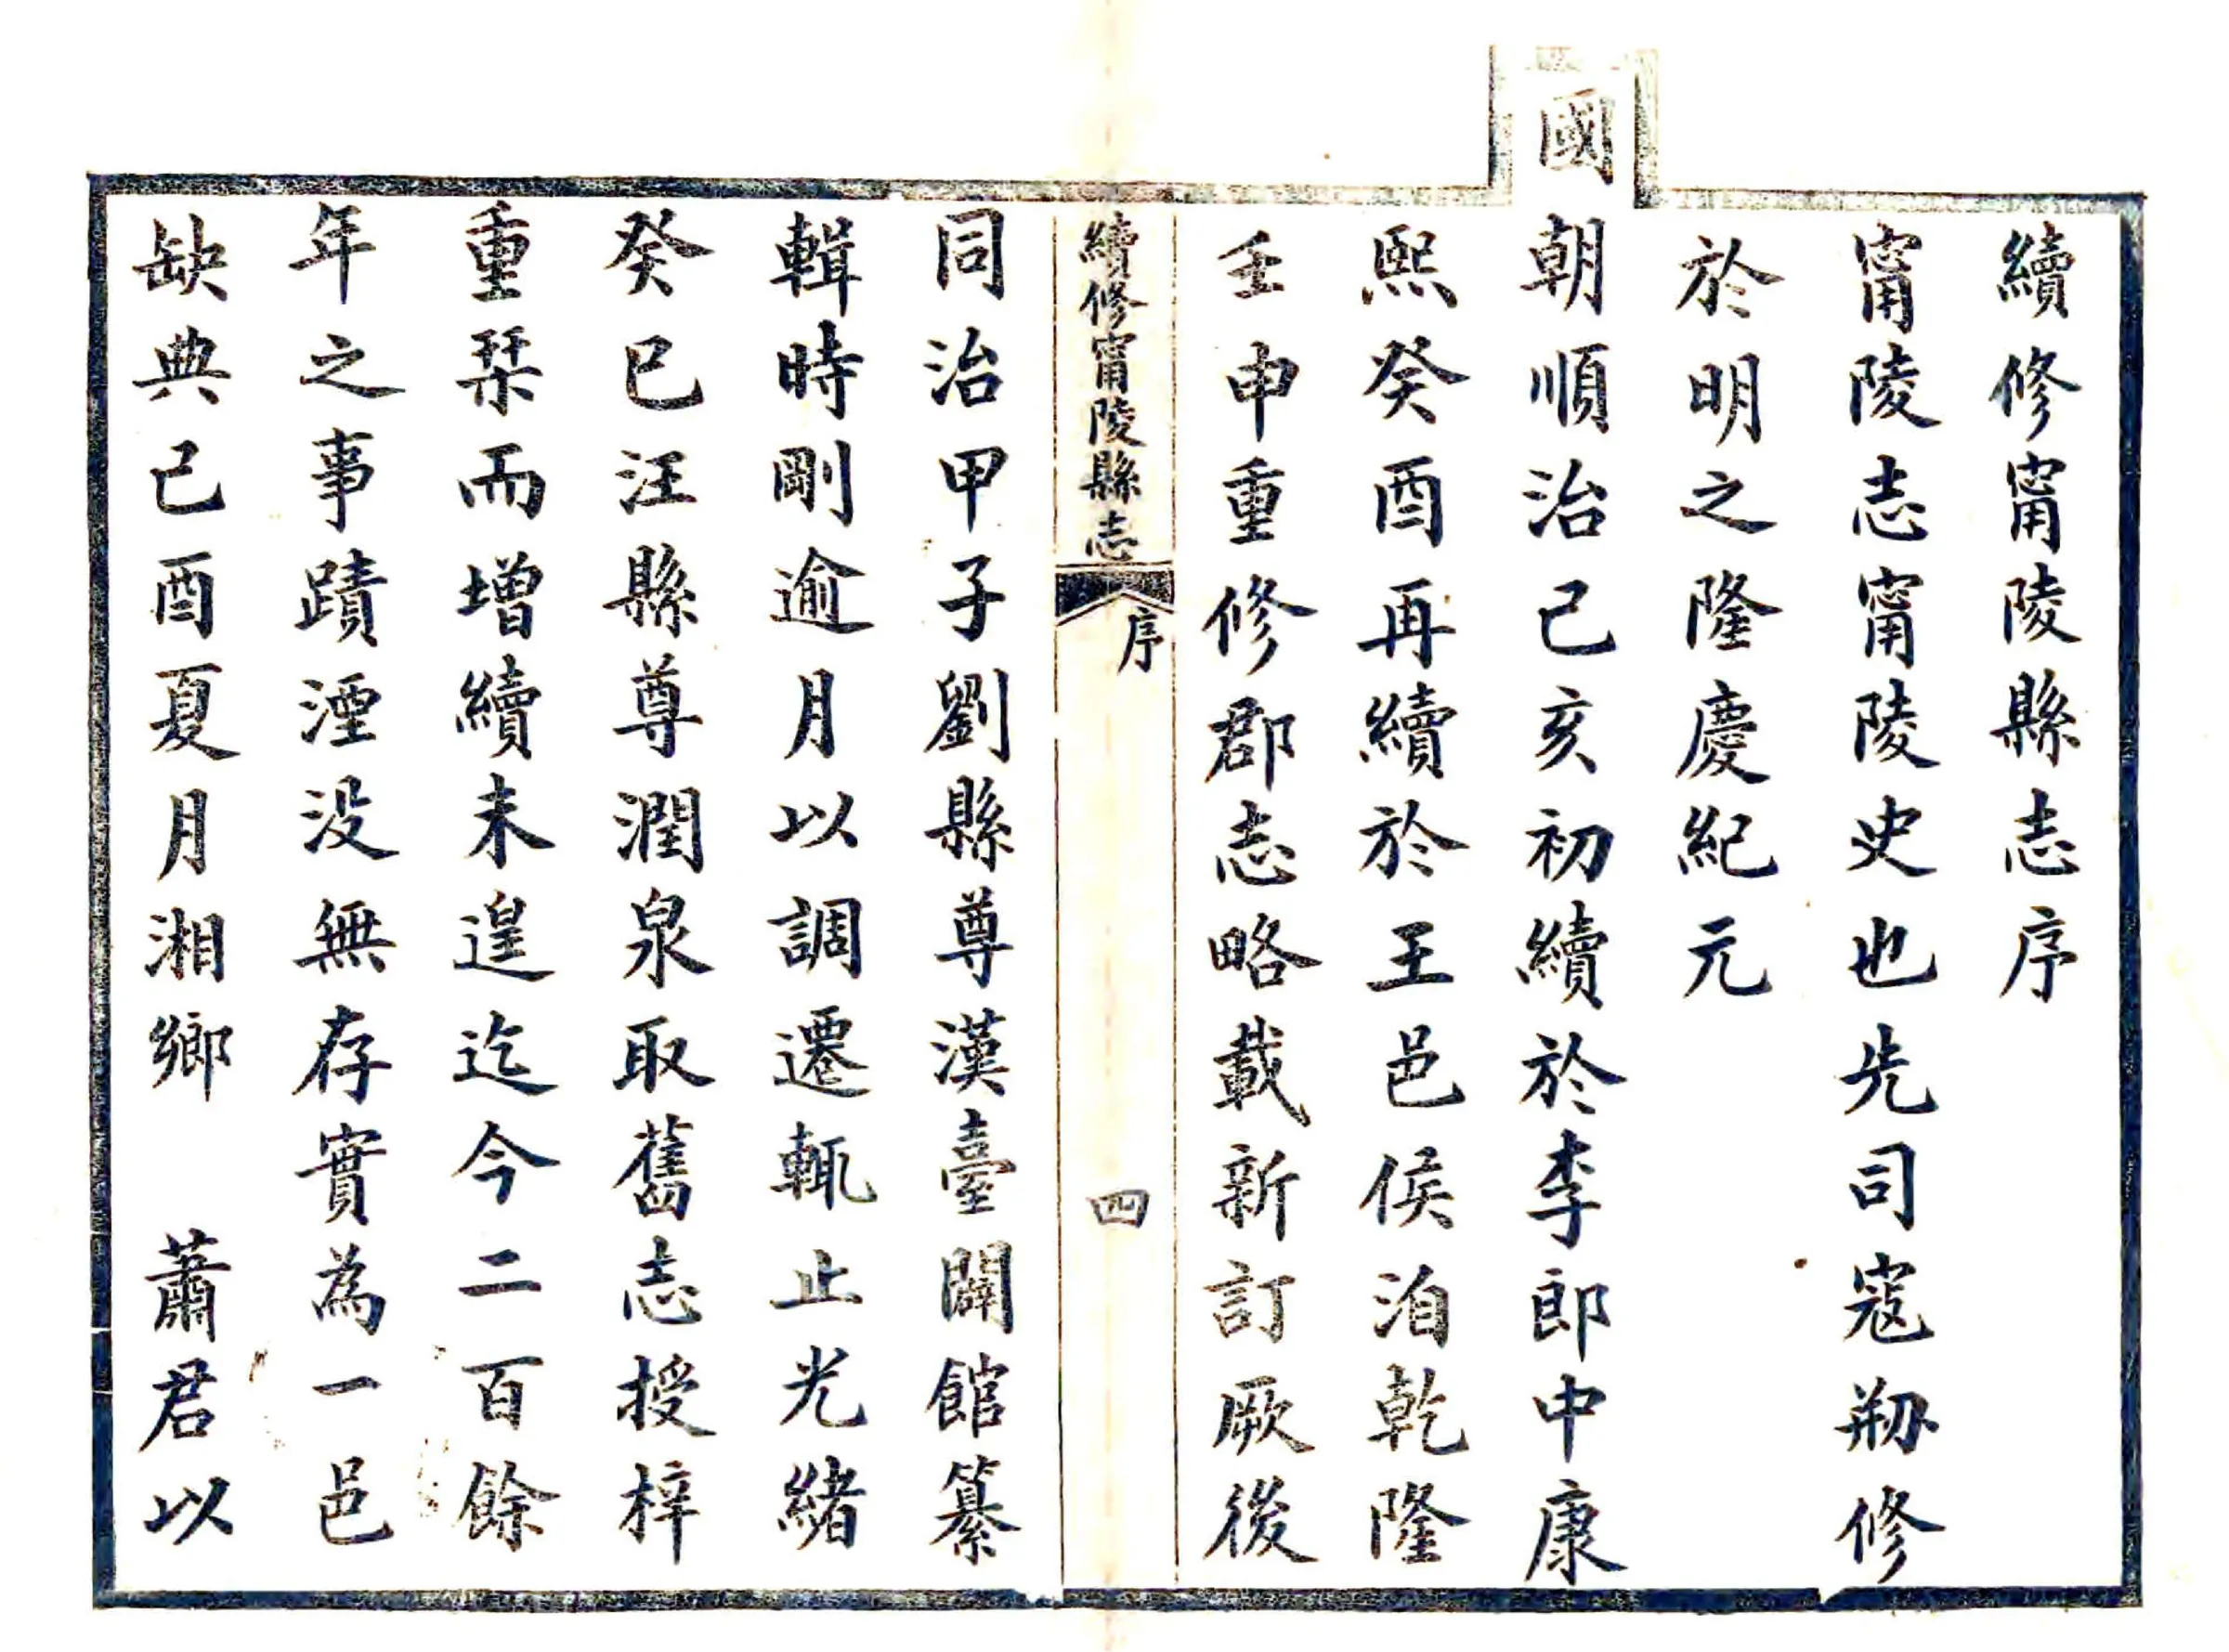 續修甯陵縣志序
甯陵志甯陵史也先司寇剏修
於明之隆慶紀元
國朝順治己亥初續於李郎中康
熙癸酉再續於王邑侯洎乾隆
壬申重修郡志略載新訂厥後
續修甯陵縣志
序
四
同治甲子劉縣尊漢臺闢館纂
輯時剛逾月以調遷輒止光緒
癸巳汪縣尊潤泉取舊志授梓
重栞而增續未遑迄今二百餘
年之事蹟湮没無存實為一邑
缺典己酉夏月湘鄉 蕭君以